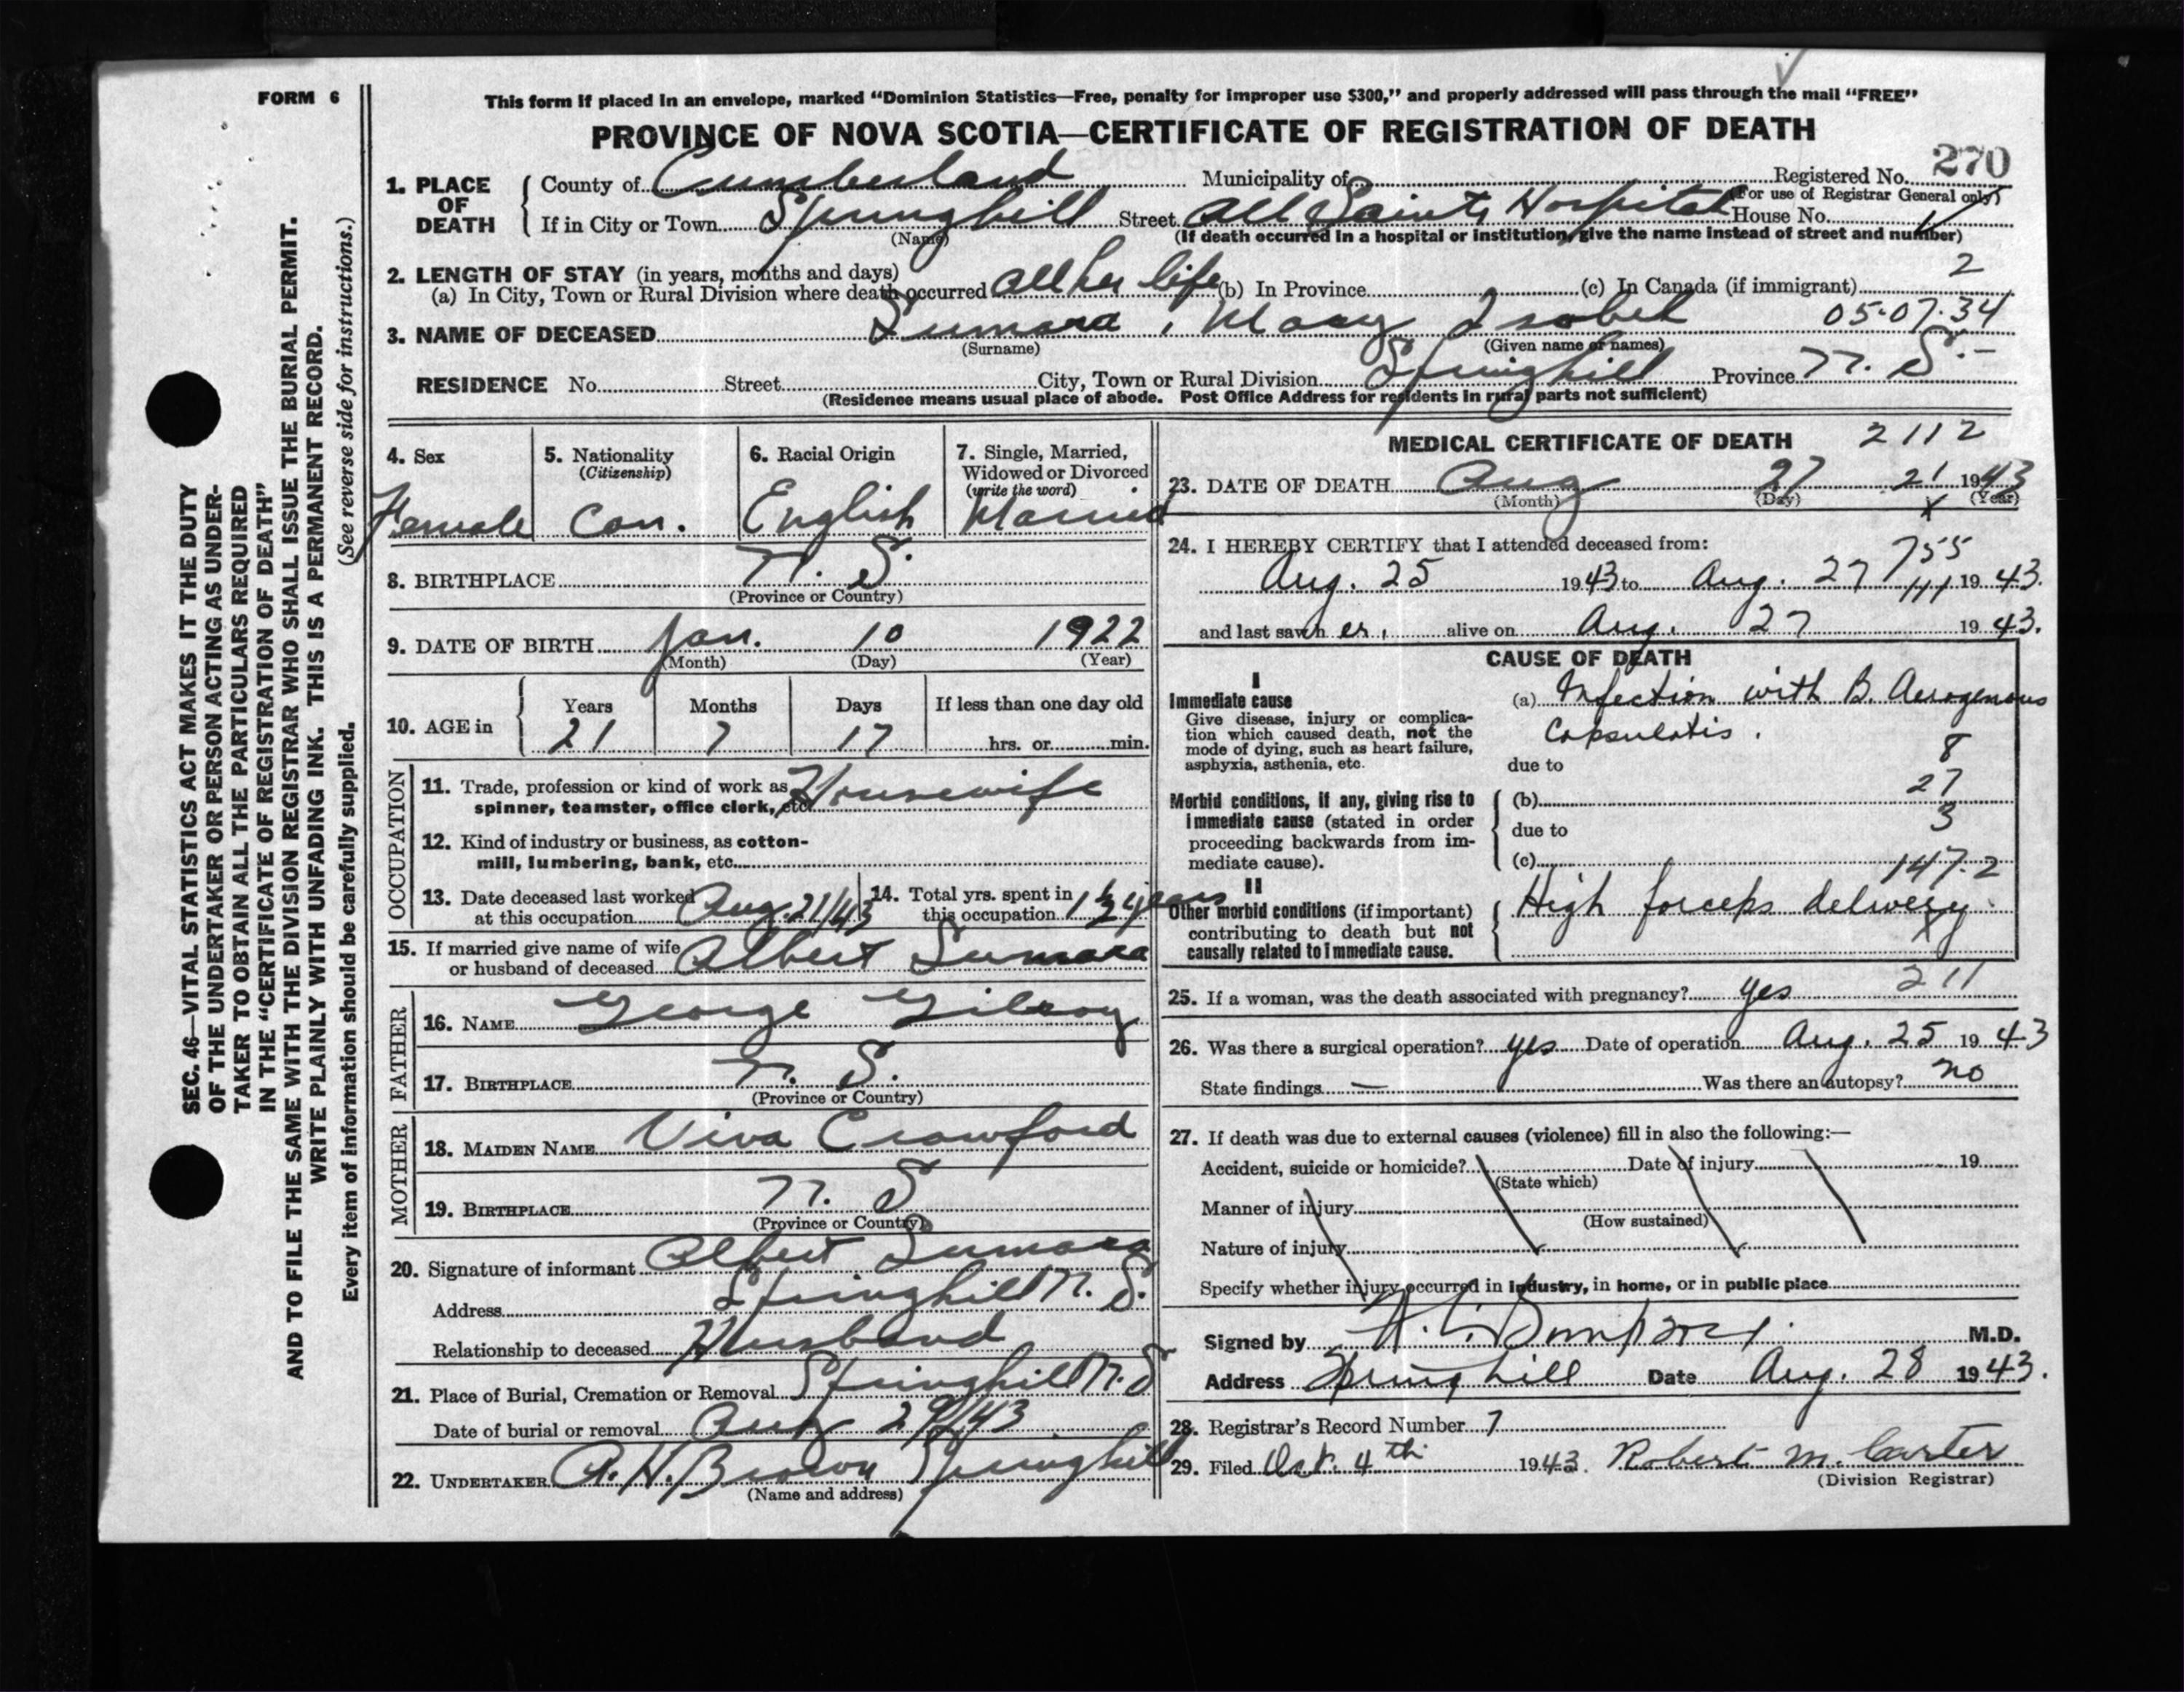 FORM 6
This form if placed in an envelope, marked “Dominion Statistics—Free, penalty for improper use $300,” and properly addressed will pass through the mail “FREE”
PROVINCE OF NOVA SCOTIA—CERTIFICATE OF REGISTRATION OF DEATH
270
1. PLACE OF DEATH
County of Cumberland Municipality of Registered No.
(For use of Registrar General only)
If in City or Town Springhill Street All Saints Hospital House No.
(Name) (If death occurred in a hospital or institution, give the name instead of street and number)
2. LENGTH OF STAY (in years, months and days) 2
(a) In City, Town or Rural Division where death occurred all her life (b) In Province (c) In Canada (if immigrant)
3. NAME OF DECEASED Sumara, Mary Isobel 05-07-34
(Surname) (Given name or names)
RESIDENCE No. Street City, Town or Rural Division Springhill Province N. S.
(Residence means usual place of abode. Post Office Address for residents in rural parts not sufficient)
4. Sex
Female
5. Nationality
(Citizenship)
Can.
6. Racial Origin
English
7. Single, Married,
Widowed or Divorced
(write the word)
Married
8. BIRTHPLACE N. S.
(Province or Country)
9. DATE OF BIRTH Jan. 10 1922
(Month) (Day) (Year)
10. AGE in
Years Months Days If less than one day old
21 7 17 hrs. or min.
OCCUPATION
11. Trade, profession or kind of work as Housewife
spinner, teamster, office clerk, etc.
12. Kind of industry or business, as cotton-
mill, lumbering, bank, etc.
13. Date deceased last worked
at this occupation Aug. 21/43
14. Total yrs. spent in
this occupation 1 1/2 years
15. If married give name of wife
or husband of deceased Albert Sumara
FATHER
16. NAME George Gilroy
17. BIRTHPLACE N. S.
(Province or Country)
MOTHER
18. MAIDEN NAME Viva Crawford
19. BIRTHPLACE N. S
(Province or Country)
20. Signature of informant Albert Sumara
Address Springhill N. S.
Relationship to deceased Husband
21. Place of Burial, Cremation or Removal Springhill N. S
Date of burial or removal Aug 29/43
22. UNDERTAKER A. H. Brown Springhill
(Name and address)
MEDICAL CERTIFICATE OF DEATH 2112
23. DATE OF DEATH Aug 27 21 1943
(Month) (Day) (Year)
24. I HEREBY CERTIFY that I attended deceased from:
755
Aug. 25 1943 to Aug. 27 1943.
and last saw her alive on Aug. 27 1943.
CAUSE OF DEATH
I
Immediate cause
Give disease, injury or complica-
tion which caused death, not the
mode of dying, such as heart failure,
asphyxia, asthenia, etc.
(a) Infection with B. Aerogenous
Capsulatis.
8
due to
27
Morbid conditions, if any, giving rise to
immediate cause (stated in order
proceeding backwards from im-
mediate cause).
(b)
due to
3
(c)
147-2
II
Other morbid conditions (if important)
contributing to death but not
causally related to immediate cause.
High forceps delivery
25. If a woman, was the death associated with pregnancy? yes 211
26. Was there a surgical operation? yes Date of operation Aug. 25 1943
State findings — Was there an autopsy? no
27. If death was due to external causes (violence) fill in also the following:—
Accident, suicide or homicide? Date of injury 19
(State which)
Manner of injury
(How sustained)
Nature of injury
Specify whether injury occurred in industry, in home, or in public place
Signed by M.D.
Address Springhill Date Aug. 28 1943.
28. Registrar's Record Number 7
29. Filed 4th 1943. Robert M. Carter
(Division Registrar)
SEC. 46—VITAL STATISTICS ACT MAKES IT THE DUTY
OF THE UNDERTAKER OR PERSON ACTING AS UNDER-
TAKER TO OBTAIN ALL THE PARTICULARS REQUIRED
IN THE “CERTIFICATE OF REGISTRATION OF DEATH”
AND TO FILE THE SAME WITH THE DIVISION REGISTRAR WHO SHALL ISSUE THE BURIAL PERMIT.
WRITE PLAINLY WITH UNFADING INK. THIS IS A PERMANENT RECORD.
Every item of information should be carefully supplied. (See reverse side for instructions.)